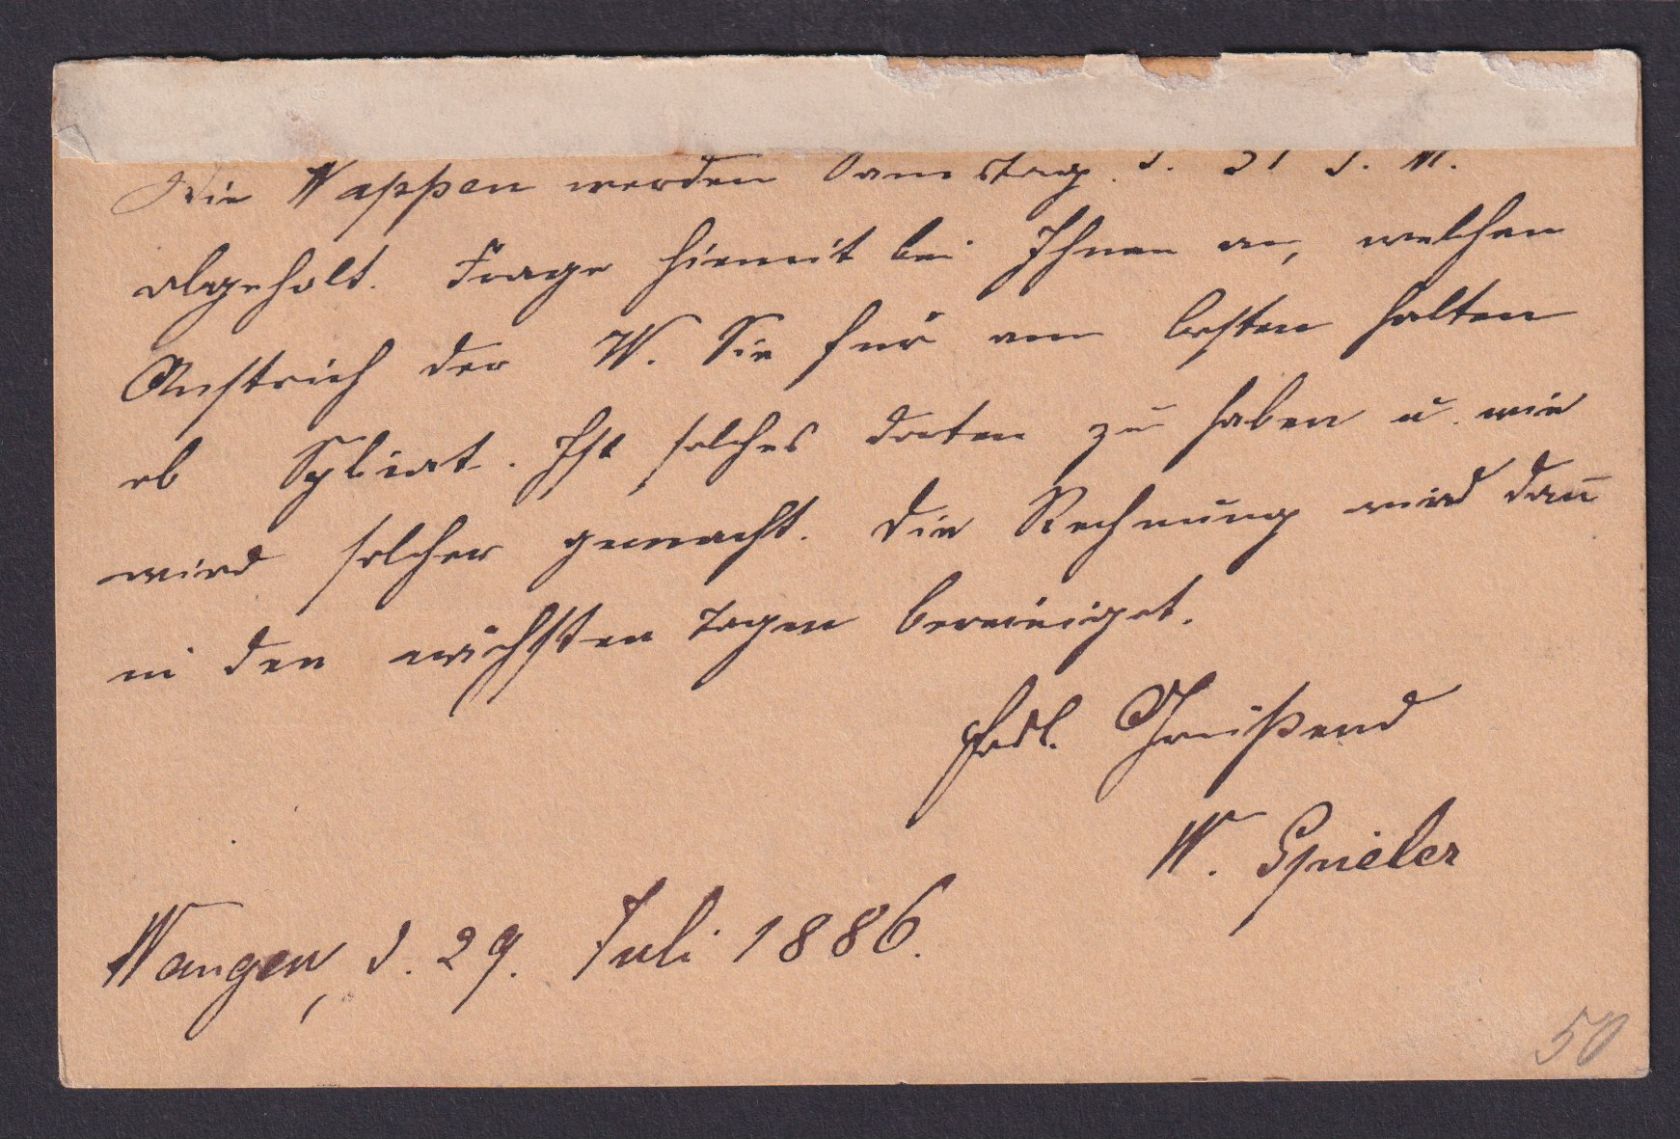 Die Wappen werden Samstag d. 31 d. M.
abgeholt. Frage hiemit bei Ihnen an, welchen
Anstrich der W. Sie für am besten halten
ob . Ist solches dorten zu haben u. wie
wird solcher gemacht. Die Rechnung wird dañ
in den nächsten Tagen bereiniget.
Grüßend
W. Spieler
Wangen, d. 29. Juli 1886.
50